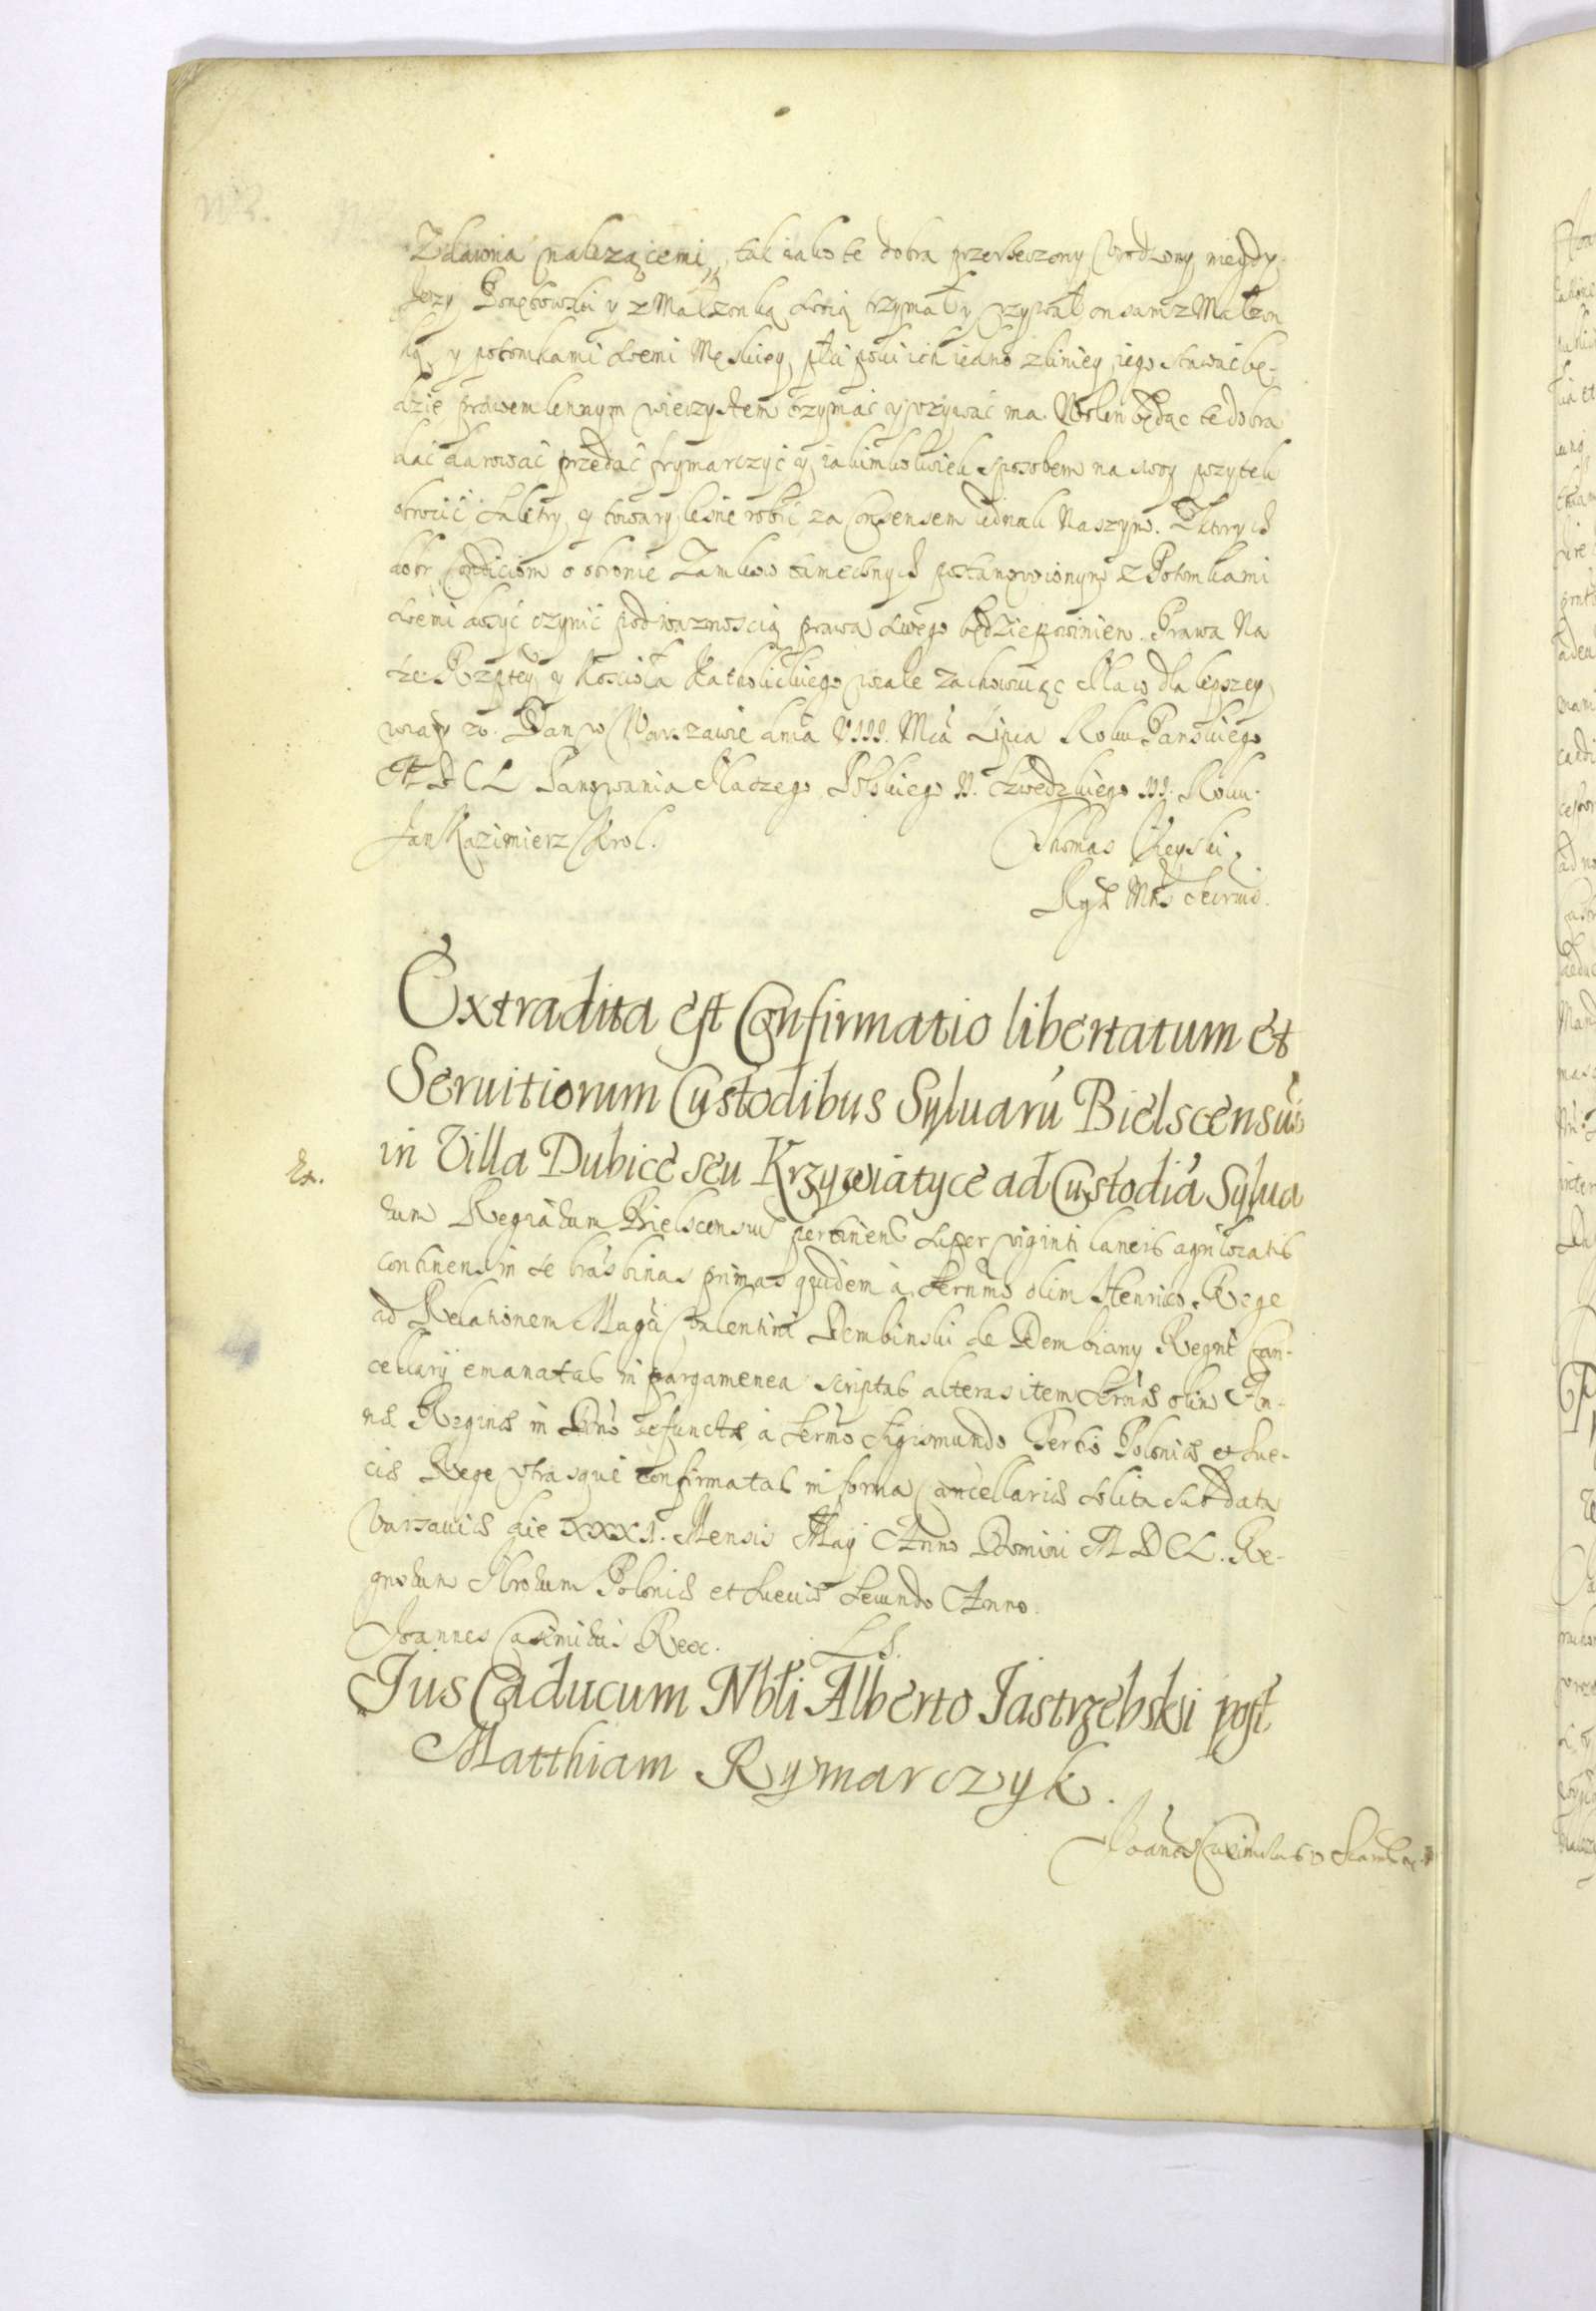 Zdawna nalezącemi, tak iako te dobra przerzeczony Vrodzony niegdy
Jerzy Ponętowski y z Małzonką swoią trzymał y vzywał on sam z Małzon
ką y potomkami swemi Męskiey płci poki ich iedno z liniey iego stawać bę-
dzie prawem lennym wieczystem trzymać y vzywać ma. Wolen będąc te dobra
dać darować przedać frymarczyć y iakimkolwiek sposobem na swoy pozytek
obrocić Saletry y towary leśne robić za Consensem iednak Naszym. Z ktorych
dobr Conditiom o obronie Zamkow tamecznych postanowionym z Potomkami
swemi dosyć czynić pod waznoscią prawa swego będzie powinien. Prawa Na
sze Rzptey y Kościoła Katholickiego wcale zachowuiąc Na co dla lepszey
wiary etc. Dan w Warszawie dnia VIII. Mca Lipca Roku Panskiego
M D C L Panowania Naszego Polskiego II. Szwedzkiego III. Roku.
Jan Kazimierz Krol.
Thomas Vieyski
Rgae Mttis Secrius.
Extradita est Confirmatio libertatum et
Seruitiorum Custodibus Syluarū Bielscensiū
in Villa Dubice seu Krzywiatyce ad Custodiā Sylua
Ex.
rum Regiarum Bielscensium pertinen. super viginti laneis agri locatis
continens in se literas binas primas quidem à Sernmo olim Henrico Rege
ad Relationem Magci Valentini Dembinski de Dembiany Regni Can-
cellarij emanatas in pargamenea scriptas alteras item Sernae olim An-
nae Reginae in Dno defunctae à Sermo Sigismundo Tertio Poloniae et Sue-
ciae Rege vtrasque confirmatas in forma Cancellariae solita sub data
Varsauiae die XXXI. Mensis Maij Anno Domini M D C L. Re-
gnorum Nrorum Poloniae et Sueciae Secundo Anno.
Joannes Casimirus Rex.
L. S.
Jus Caducum Nbli Alberto Jastrzebski post
Matthiam Rymarczyk.
Joannes Casimirus